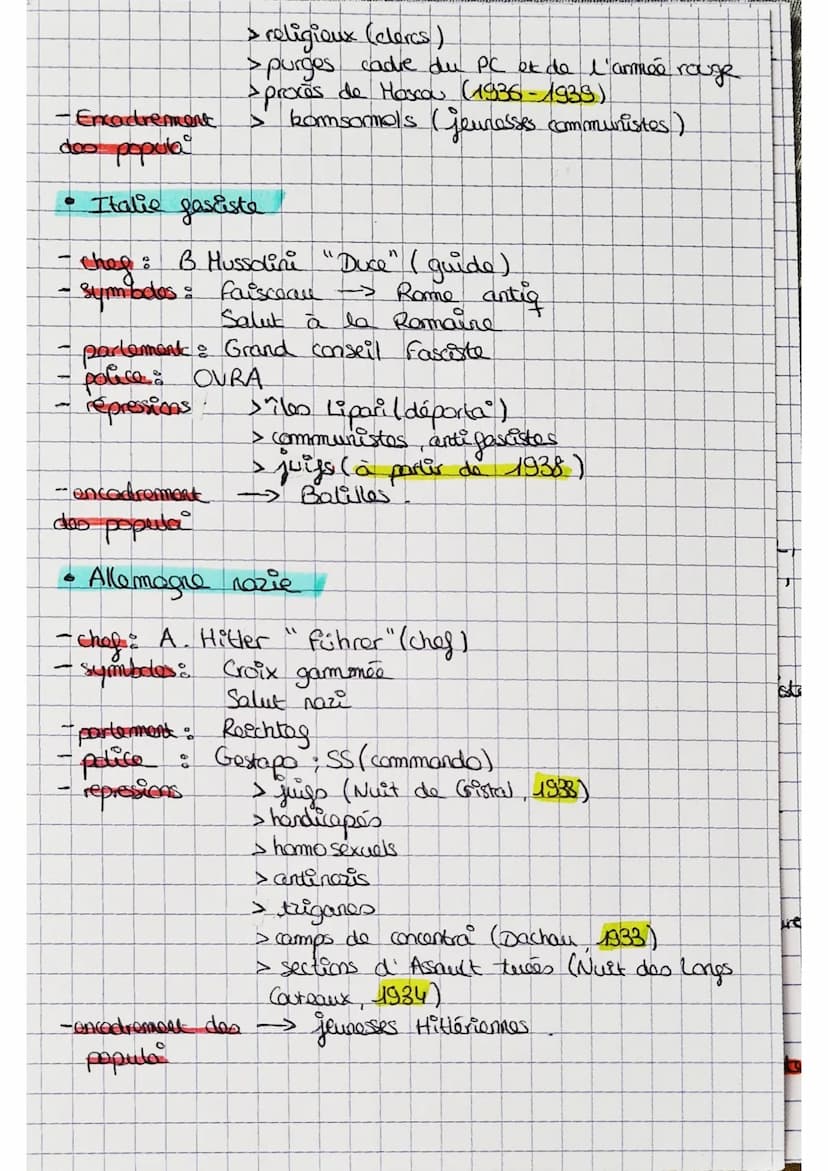 > religieux (clercs)
> purges cadre du PC et de l'armée rouge
> procès de Moscou (1936-1939)
- Encadrement > komsomols (jeunesses communistes)
des popula°
• Italie fasciste
- chef : B Mussolini "Duce" (guide)
- symboles : Faisceau → Rome antiq
Salut à la Romaine
- parlement : Grand conseil Fasciste
- police : OVRA
- répressions : > îles Lipari (déporta°)
> communistes, antifascistes
> juifs (à partir de 1938)
- encadrement → Balillas.
des popula°
• Allemagne nazie
- chef : A. Hitler "Führer" (chef)
- symboles : Croix gammée
Salut nazi
- parlement : Reichtag
- police : Gestapo ; SS (commando)
- represions > juifs (Nuit de Cristal, 1938)
> handicapés
> homosexuels
> antinazis
> tziganes
> camps de concentra° (Dachau, 1933)
> sections d'Assault tuées (Nuit des Longs
Couteaux, 1934)
- encadrement des → jeunesses Hitlériennes.
popula°